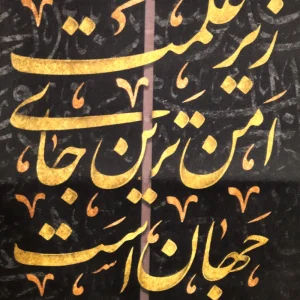 زیر علمت
امن ترین جای
جهان است